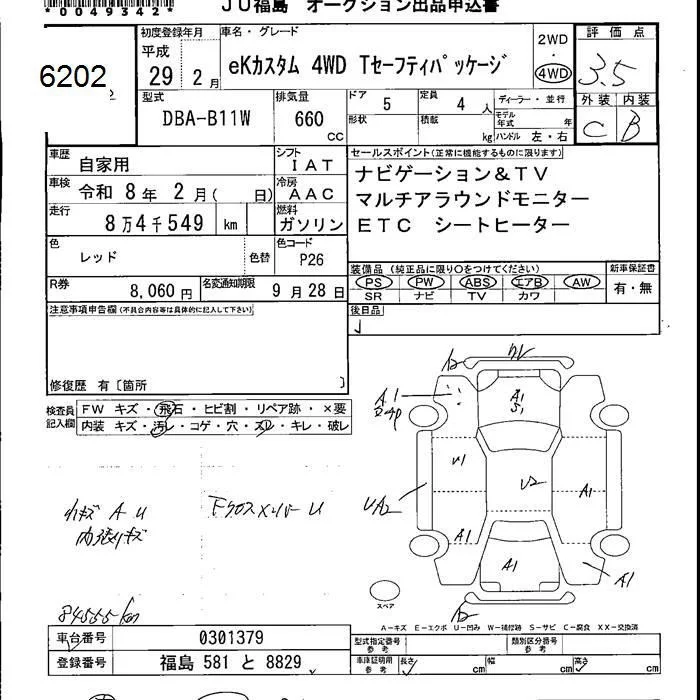 *0049342*
JU福島 オークション出品申込書
6202
初度登録年月
平成
29 2月
車名・グレード
eKカスタム 4WD Tセーフティパッケージ
2WD
・
4WD
評価点
3.5
外装 内装
C B
型式
DBA-B11W
排気量
660
CC
ドア 5
形状
定員 4 人
積載 kg
ディーラー・並行
モデル年式 年
ハンドル 左・右
車歴 自家用
シフト IAT
車検 令和 8年 2月( 日)
冷房 AAC
走行 8万4千549 km
燃料 ガソリン
色 レッド 色替
色コード P26
R券 8,060円
名変通知期限 9月28日
セールスポイント(正常に機能するものに限ります)
ナビゲーション&TV
マルチアラウンドモニター
ETC シートヒーター
装備品 (純正品に限り○をつけてください)
PS PW ABS エアB AW
SR ナビ TV カワ
新車保証書
有・無
後日品
注意事項申告欄(不具合内容等は具体的に記入して下さい)
修復歴 有〔箇所 〕
検査員記入欄
FW キズ・飛石・ヒビ割・リペア跡・×要
内装 キズ・汚レ・コゲ・穴・スレ・キレ・破レ
A1
A1
S1
U1
U2
A1
UA2
A1
A1
A1
スペア
内張りキズ
84555km
A-キズ E-エクボ U-凹み W-補修跡 S-サビ C-腐食 XX-交換済
車台番号 0301379
登録番号 福島 581 と 8829
型式指定番号 参考
類別区分番号 参考
車庫証明用 参考
長さ cm 幅 cm 高さ cm